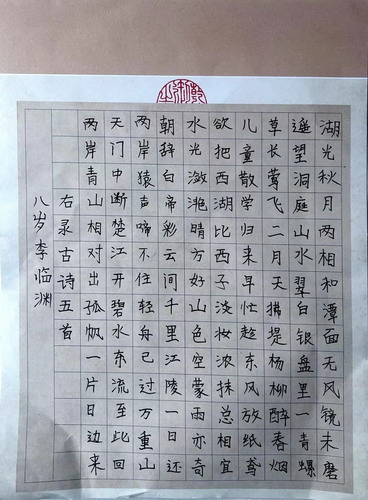 湖光秋月两相和潭面无风镜未磨
遥望洞庭山水翠白银盘里一青螺
草长莺飞二月天拂堤杨柳醉春烟
儿童散学归来早忙趁东风放纸鸢
欲把西湖比西子淡妆浓抹总相宜
水光潋滟晴方好山色空蒙雨亦奇
朝辞白帝彩云间千里江陵一日还
两岸猿声啼不住轻舟已过万重山
天门中断楚江开碧水东流至此回
两岸青山相对出孤帆一片日边来
右录古诗五首
八岁李临渊